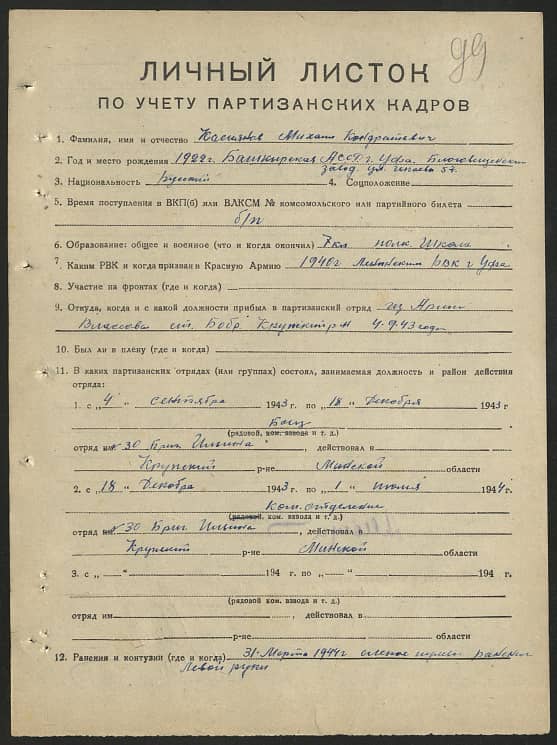 99
ЛИЧНЫЙ ЛИСТОК
ПО УЧЕТУ ПАРТИЗАНСКИХ КАДРОВ
1. Фамилия, имя и отчество Касьянов Михаил Кондратьевич
2. Год и место рождения 1922г. Башкирская АССР г. Уфа. Благовещенский
завод. ул. Чапаева 57.
3. Национальность Русский 4. Соцположение
5. Время поступления в ВКП(б) или ВЛКСМ № комсомольского или партийного билета
б/п
6. Образование: общее и военное (что и когда окончил) 7кл полк. Школа
7. Каким РВК и когда призван в Красную Армию 1940г РВК г Уфа
8. Участие на фронтах (где и когда)
9. Откуда, когда и с какой должности прибыл в партизанский отряд из Армии
Власова ст. Бобр 4.9.43 года
10. Был ли в плену (где и когда)
11. В каких партизанских отрядах (или группах) состоял, занимаемая должность и район действия
отряда:
1. с „4" сентября 1943 г. по „18" Декабря 1943 г
Боец
(рядовой, ком. взвода и т. д.)
отряд 30 Бриг , действовал в
Крупский р-не Минской области
2. с „18" Декабря 1943 г. по „1" июля 1944 г.
Ком. отделения
(рядовой, ком. взвода и т. д.)
отряд 30 Бриг , действовал в
Крупский р-не Минской области
3. с „ " 194 г. по „ " 194 г.
(рядовой, ком. взвода и т. д.)
отряд им , действовал в
р-не области
12. Ранения и контузии (где и когда) 31. Марта 1944г ранение
Левой руки